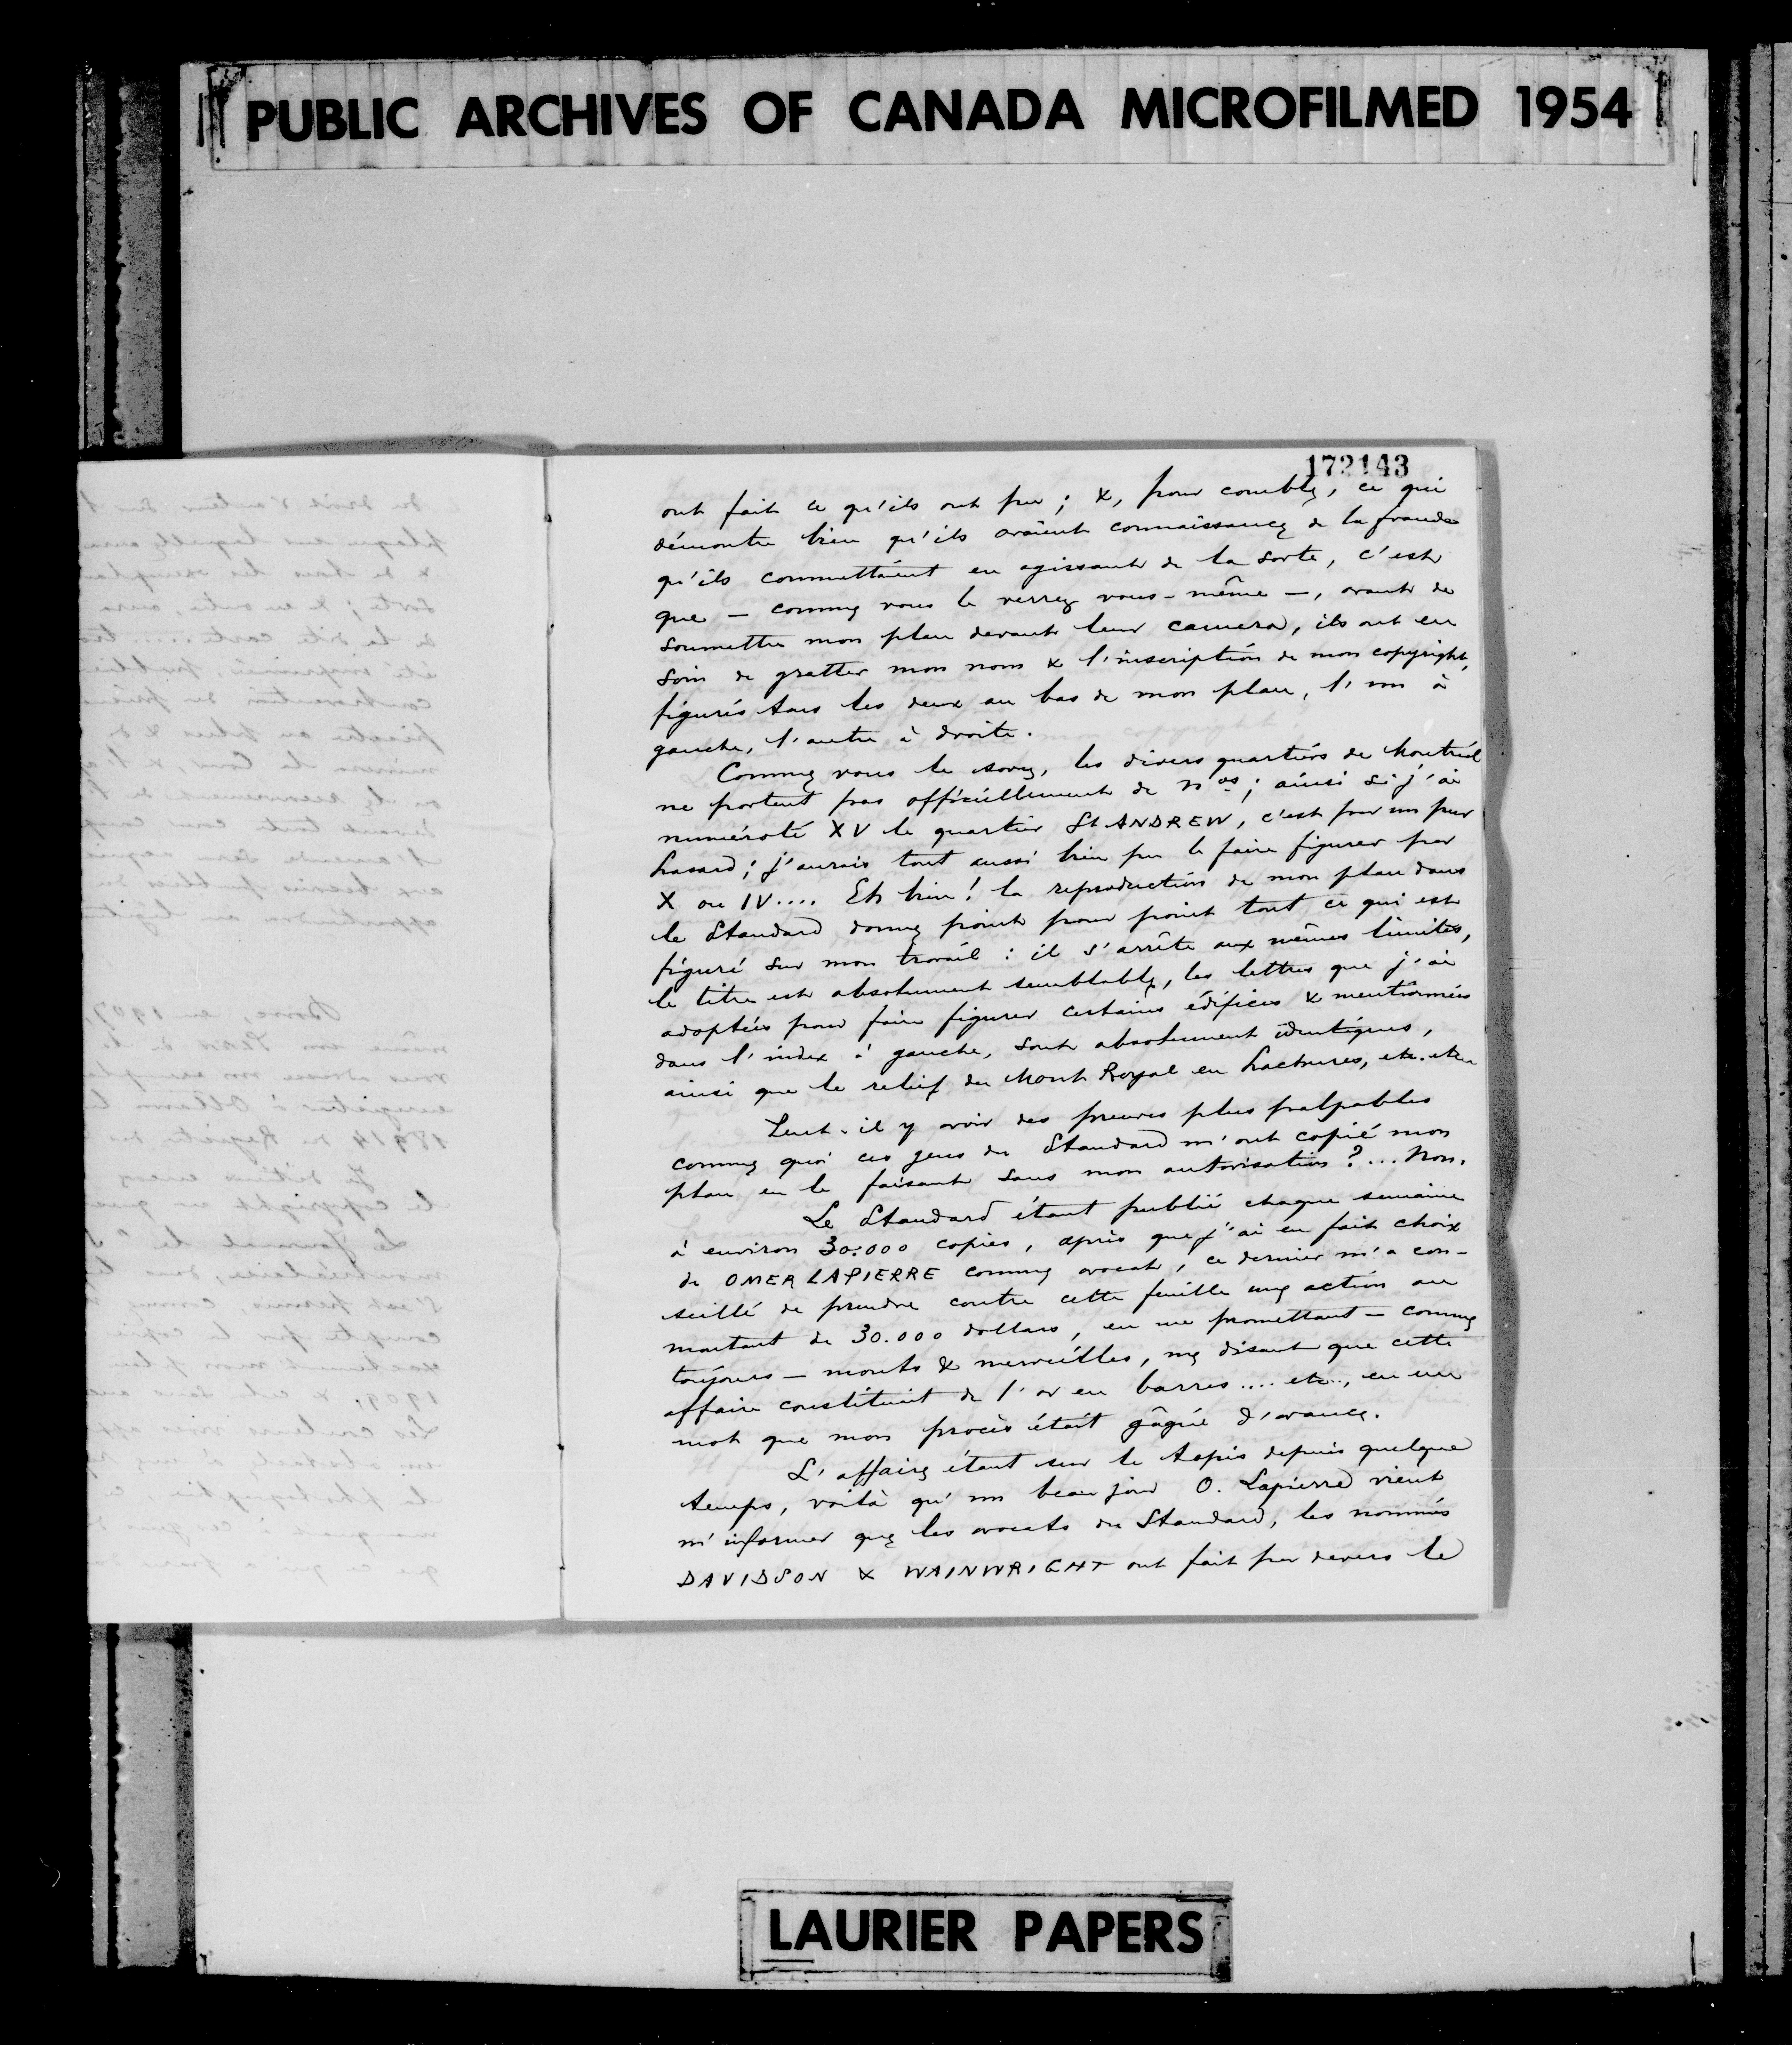 PUBLIC ARCHIVES OF CANADA MICROFILMED 1954
172143
ont fait ce qu'ils ont pu ; &, pour comble, ce qui
démontre bien qu'ils avaient connaissance de la fraude
qu'ils commettaient en agissant de la sorte, c'est
que — comme vous le verrez vous-même —, avant de
soumettre mon plan devant leur camera, ils ont eu
soin de gratter mon nom & l'inscription de mon copyright,
figurés tous les deux au bas de mon plan, l'un à
gauche, l'autre à droite.
Comme vous le savez, les divers quartiers de Montréal
ne portent pas officiellement de nos ; ainsi si j'ai
numéroté XV le quartier St ANDREW, c'est par un pur
hasard ; j'aurais tout aussi bien pu le faire figurer par
X ou IV.... Eh bien ! la reproduction de mon plan dans
le Standard donne point pour point tout ce qui est
figuré sur mon travail : il s'arrête aux mêmes limites,
le titre est absolument semblable, les lettres que j'ai
adoptées pour faire figurer certains édifices & mentionnées
dans l'index à gauche, sont absolument identiques,
ainsi que le relief du Mont Royal en hachures, etc. etc.
Peut-il y avoir des preuves plus palpables
comme quoi ces gens du Standard m'ont copié mon
plan en le faisant sans mon autorisation ?... Non.
Le Standard étant publié chaque semaine
à environ 30.000 copies, après que j'ai eu fait choix
de OMER LAPIERRE comme avocat, ce dernier m'a con-
seillé de prendre contre cette feuille une action au
montant de 30.000 dollars, en me promettant — comme
toujours — monts & merveilles, me disant que cette
affaire constituait de l'or en barres .... etc.., en un
mot que mon procès était gâgné d'avance.
L'affaire étant sur le tapis depuis quelque
temps, voilà qu'un beau jour O. Lapierre vient
m'informer que les avocats du Standard, les nommés
DAVIDSON & WAINWRIGHT ont fait par devers le
LAURIER PAPERS